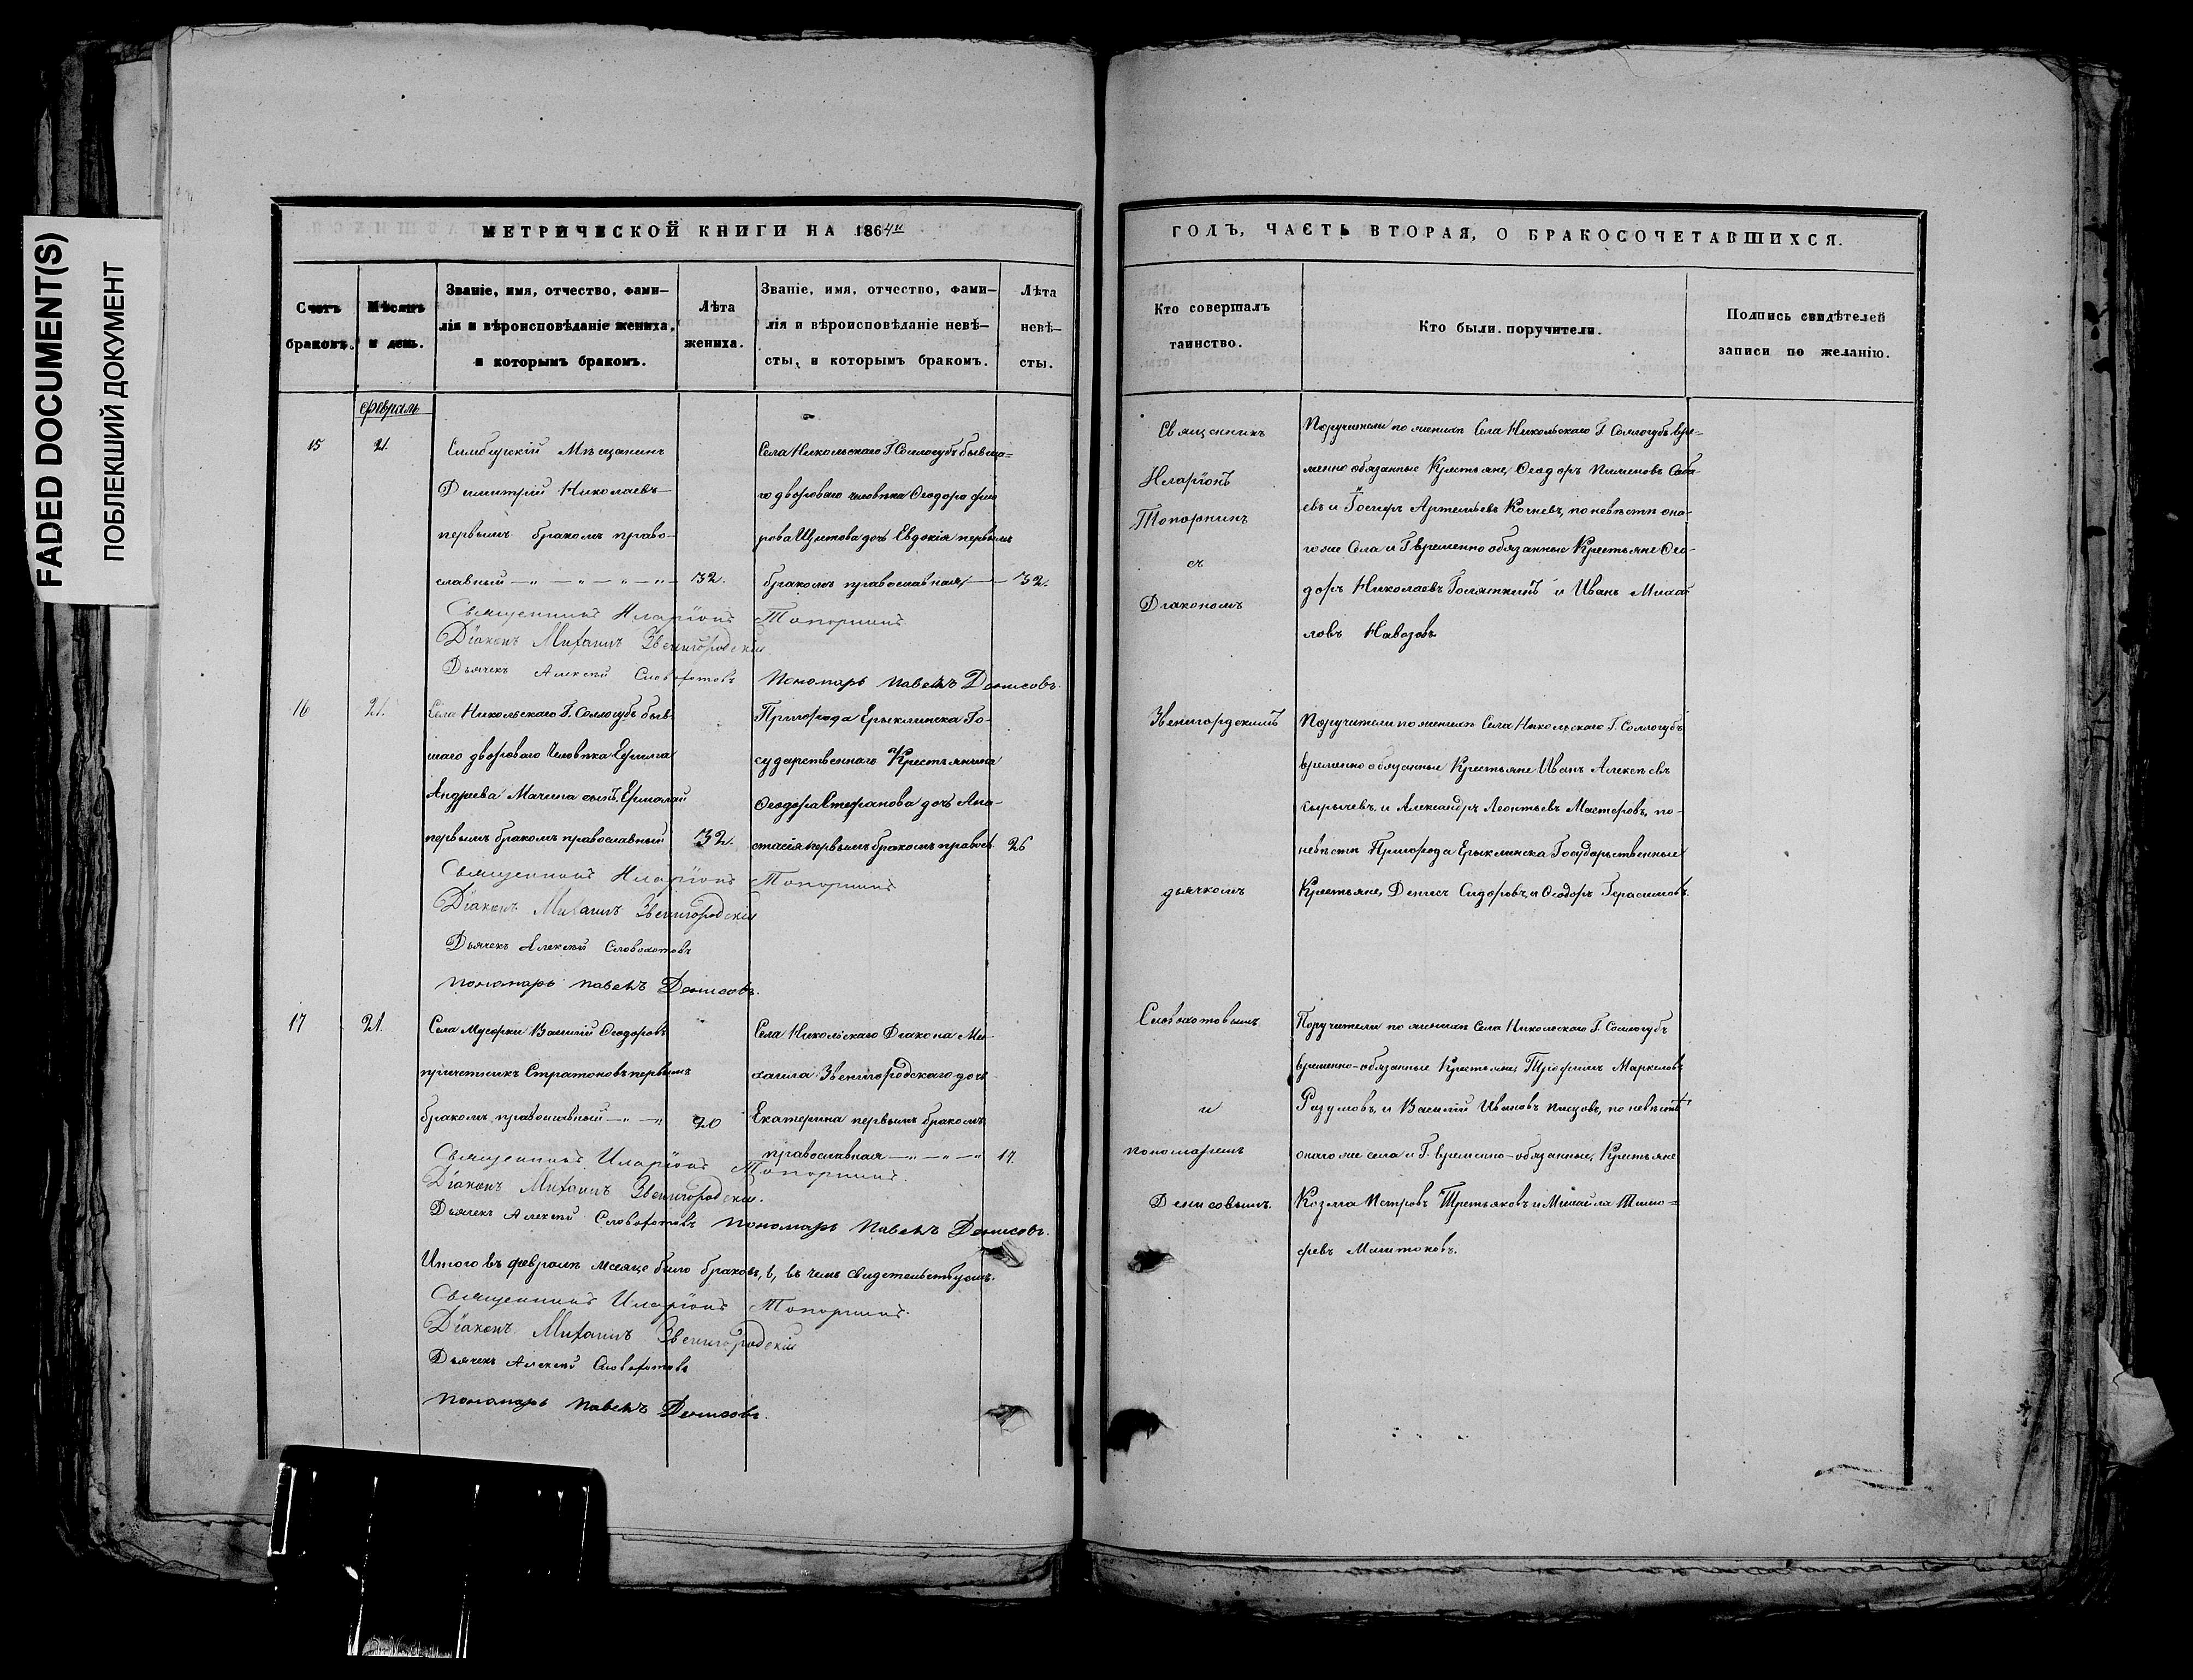 FADED DOCUMENT(S)
ПОБЛЕКШИЙ ДОКУМЕНТ
МЕТРИЧЕСКОЙ КНИГИ НА 1864й
Счетъ браковъ.
Мѣсяцъ и день.
Званіе, имя, отчество, фами-
лія и вѣроисповѣданіе жениха,
и которымъ бракомъ.
Лѣта
жениха.
Званіе, имя, отчество, фами-
лія и вѣроисповѣданіе невѣ-
сты, и которымъ бракомъ.
Лѣта
невѣ-
сты.
Февраль
15 21.
Симбирскій Мѣщанинъ
Димитрій Николаевъ
первымъ бракомъ право-
славный 32.
Села Никольскаго Г. Соллогубъ бывша-
го двороваго человѣка Ѳеодора
рова дочь Евдокія первымъ
бракомъ православная 32.
Священникъ Иларіонъ Топорнинъ
Діаконъ Михаилъ Звенигородскій
Дьячекъ Алексѣй Словохотовъ Пономарь Павелъ Денисовъ.
16 21.
Села Никольскаго Г. Соллогубъ быв-
шаго двороваго Человѣка Ефима
Андреева Мачина сынъ Ермолай
первымъ бракомъ православный 32.
Пригорода Ерыклинска Го-
сударственнаго Крестьянина
Ѳеодора Стефанова дочь Ана-
стасія первымъ бракомъ правосл. 26
Священникъ Иларіонъ Топорнинъ
Діаконъ Михаилъ Звенигородскій
Дьячекъ Алексѣй Словохотовъ
Пономарь Павелъ Денисовъ.
17 21.
Села Мусорки Василій Ѳеодоровъ
причетникъ Стратоновъ первымъ
бракомъ православный 20
Села Никольскаго Діакона Ми-
хаила Звенигородскаго дочь
Екатерина первымъ бракомъ
православная 17.
Священникъ Иларіонъ Топорнинъ.
Діаконъ Михаилъ Звенигородскій.
Дьячекъ Алексѣй Словохотовъ Пономарь Павелъ Денисовъ.
Итого въ февралѣ мѣсяце было браковъ, въ чемъ свидетельствуемъ.
Священникъ Иларіонъ Топорнинъ.
Діаконъ Михаилъ Звенигородскій
Дьячекъ Алексѣй Словохотовъ
Пономарь Павелъ Денисовъ.
ГОДЪ, ЧАСТЬ ВТОРАЯ, О БРАКОСОЧЕТАВШИХСЯ.
Кто совершалъ
таинство.
Кто были поручители.
Подпись свидѣтелей
записи по желанію.
Священникъ
Иларіонъ
Топорнинъ
съ
Діакономъ
Звенигородскимъ
дьячкомъ
Словохотовымъ
и
пономаремъ
Денисовымъ.
Поручители по женихѣ Села Никольскаго Г. Соллогубъ вре-
менно обязанные Крестьяне, Ѳеодоръ Пименовъ
евъ и Іосифъ Артемьевъ Кочневъ, по невѣстѣ она-
го же Села и Г. временно обязанные Крестьяне Ѳео-
доръ Николаевъ Голяткинъ и Иванъ Михай-
ловъ Навозовъ
Поручители по женихѣ Села Никольскаго Г. Соллогубъ
временно обязанные Крестьяне Иванъ Алексѣевъ
и Александръ Леонтьевъ Мастеровъ, по-
невѣстѣ Пригорода Ерыклинска Государственные
Крестьяне, Денисъ Сидоровъ, и Ѳеодоръ Герасимовъ.
Поручители по женихѣ Села Никольскаго Г. Соллогубъ
временно-обязанные Крестьяне, Трофимъ Маркеловъ
Разумовъ, и Василій Ивановъ Писцовъ, по невѣстѣ
онаго же села и Г. временно-обязанные, Крестьяне
Козма Петровъ Третьяковъ и Михайла Тимо=
февъ